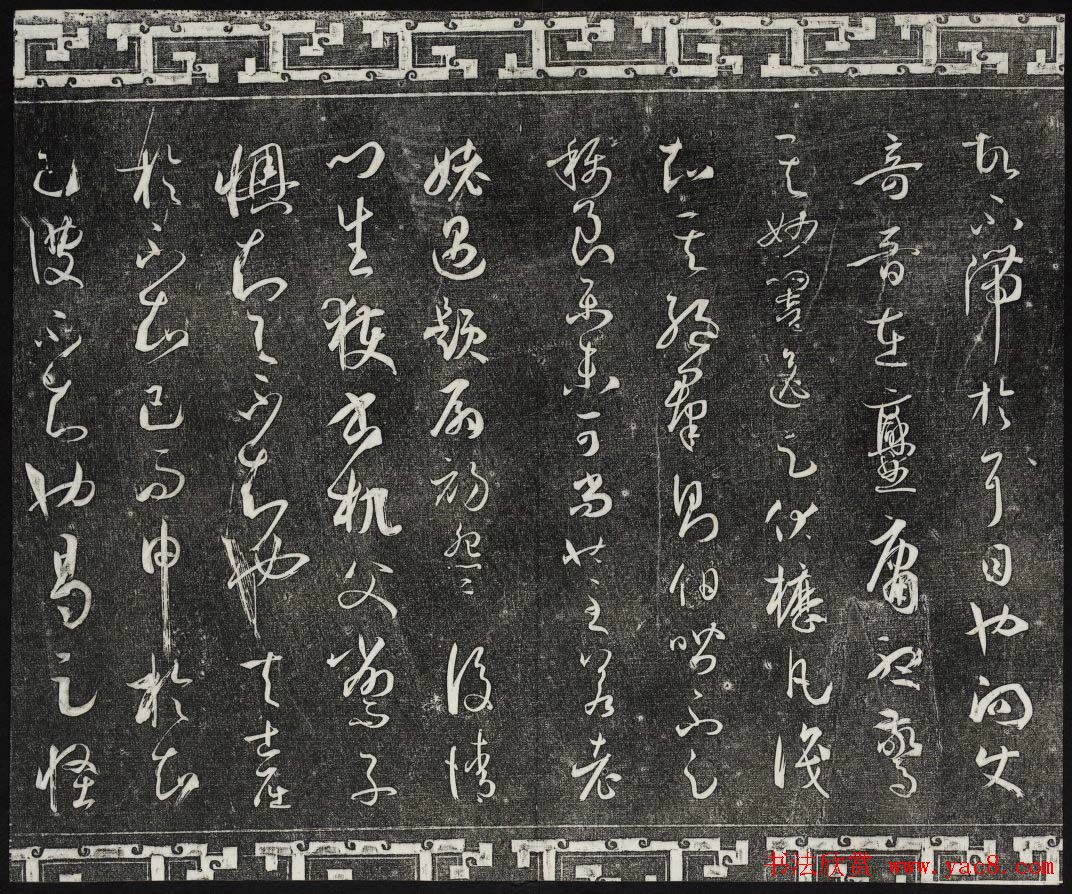 故不滯於耳目也向使
奇音在爨庸聽驚
其妙響逸足伏櫪凡識
知其絕群則伯喈不足
稱良樂未可尚也至若老
姥遇題扇初怨而後請
門生獲書机父削而子
懊知與不知也夫士屈
於不知己而申於知
己彼不知也曷足怪
书法欣赏 www.yac8.com